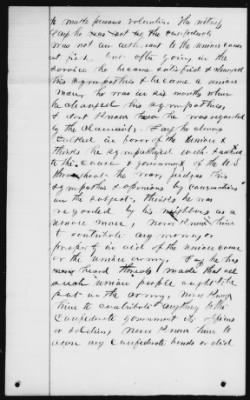 to make persons volunteer. The witness
says he was sent by the Confederate
was not an adherent to the union cause
at first, but after going in the
service he became satisfied & changed
his sympathies & became a union
man, he was in six months when
he changed his sympathies,
& dont know how he was regarded
by the Claimants. Says he always
talked in favor of the Union &
thinks he sympathized with
to the cause & government of the U S
throughout the war, judges his
sympathies & opinions by conversations
on the subject, thinks he was
regarded by his neighbors as a
union man, never knew him
to contribute any money or
property in aid of the union cause
or the union army. Says he has
heard threats made that all
such union people ought to be
put in the army, never knew
him to contribute anything to the
Confederate government its
or soldiers, never knew him to
own any Confederate bonds or did